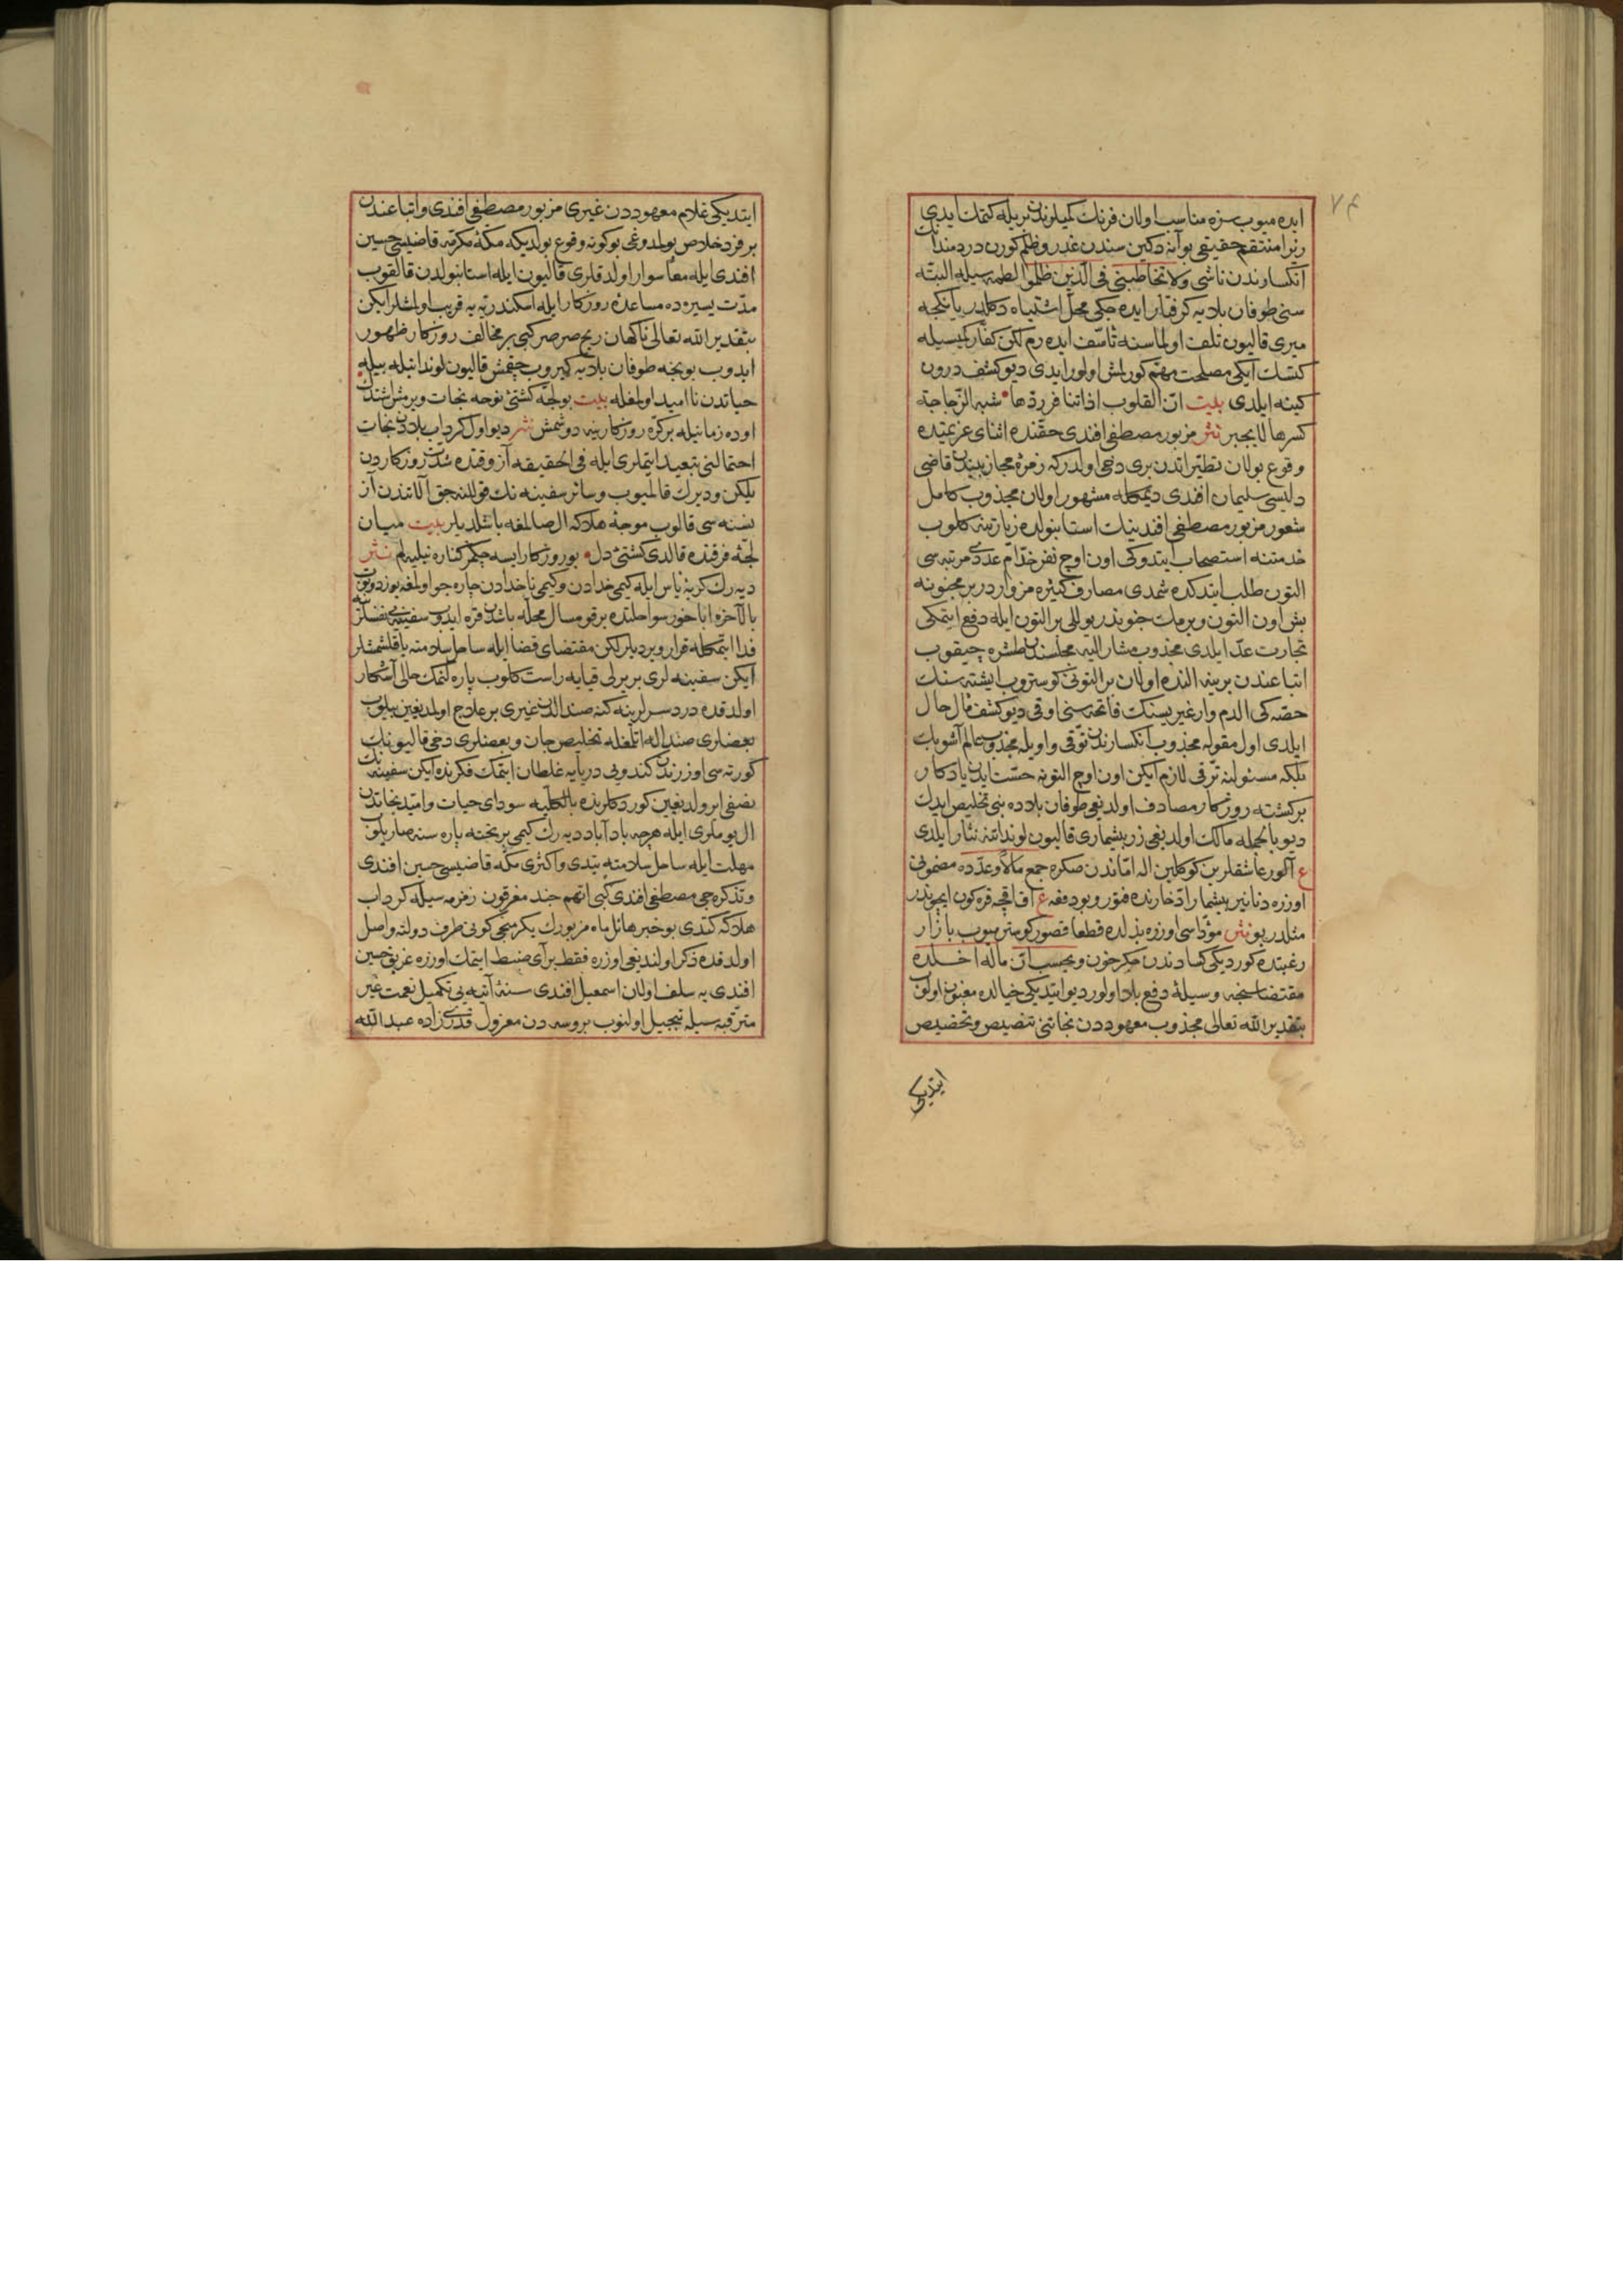 ٧٤
ايده ميوب سزه مناسب اولان فرنك كميلرندن بريله كتمك ايدى
زيرا منتقم حقيقى بو آنه دكين سندن غدر و ظلم كورن دردمندانك
انكسارندن ناشى ولا تخاطبنى فى الذين ظلموا لطمه سيله البته
سنى طوفان بلايه كرفتار ايده جكى محل اشتباه دكلدر يا نيجه
ميرى قاليون تلف اولماسنه تأسف ايده رم لكن كفار كميسيله
كتسك ايكى مصلحت مهم كورلمش اولور ايدى ديو كشف درون
كينه ايلدى بيت ان القلوب اذا تنافر ردها شبه الزجاجة
كسرها لا يجبر نثر مزبور مصطفى افندى حقنده اثناى عزيمتده
وقوع بولان تطيراتدن برى دخى اولدركه زمرهٔ مجاذيبدن قاضى
دليسى سليمان افندى ديمكله مشهور اولان مجذوب كامل
شعور مزبور مصطفى افندينك استانبولده زيارتنه كلوب
خدمتنه استصحاب ايتدوكى اون اوچ نفر خدام عددى مرتبه سى
التون طلب ايتدكده شمدى مصارف كثيره مز واردر بر مجنونه
بش اون التون ويرمك جنوندر يوللى بر التون ايله دفع ايتمكى
تجارت عد ايلدى مجذوب مشار اليه مجلسندن طشره چيقوب
اتباعندن برينه النده اولان بر التونى كوستروب ايشته سنك
حصه كى الدم وار غيريسنك فاتحه سنى اوقى ديو كشف مآل حال
ايلدى اول مقوله مجذوب انكسارندن توقى و اويله مجذوب عالم آشوبك
بلكه مسئولنه ترقى لازم ايكن اون اوچ التونه خست ايدن يادكار
بركشته روزكار مصادف اولديغى طوفان بلاده بنى تخليص ايدك
ديو بالجمله مالك اولديغى زر بيشمارى قاليون لونداتنه نثار ايلدى
ع آلور عاشقلرين كوكلين اله اماندن صكره جمع مالا وعدده مضمونى
اوزره دنانير بيشمار ادخارنده فتور و بو دفعه ع آق اقچه قره كون ايچوندر
مثلدر بو نثر مؤداسى اوزره بذلده قطعا قصور كوسترميوب بازار
رغبتده كورديكى كساددن جكرخون و يحسب ان ماله اخلده
مقتضاسنجه وسيلهٔ دفع بلا اولور ديو ايتديكى خيالده مغبون اولوب
بتقدير الله تعالى مجذوب معهوددن نجاتنى تنصيص و تخصيص
ايتديكى
ايتديكى غلام معهوددن غيرى مزبور مصطفى افندى و اتباعندن
بر فرد خلاص بولمدوغى بو كونه وقوع بولديكه مكهٔ مكرمه قاضيسى حسين
افندى ايله معا سوار اولدقلرى قاليون ايله استانبولدن قالقوب
مدت يسيره ده مساعدهٔ روزكار ايله اسكندريه يه قريب اولمشلر ايكن
بتقدير الله تعالى ناكهان ريح صرصر كبى بر مخالف روزكار ظهور
ايدوب بو نجه طوفان بلايه كيروب چقمش قاليون لونداتيله بيله
حياتدن نااميد اولمغله بيت بو لجه كشتئ نوحه نجات ويرمش اشتدك
او ده زمانيله بر كره روزكارينه دوشمش نثر ديو اول كرداب بلادن نجات
احتمالنى تبعيد ايتملرى ايله فى الحقيقه آز وقتده شدت روزكاردن
يلكن و ديرك قالميوب و سائر سفينه نك قوللنه جق آلاتندن آز
نسنه سى قالوب موجهٔ هلاكه ال صالمغه باشلديلر بيت ميان
لجهٔ فرقتده قالدى كشتئ دل بو روزكار ايسه چكمز كناره نيليه لم نثر
ديه رك كريهٔ ياس ايله كيمى خدادن و كيمى ناخدادن چاره جو اولمغه يوز دوتوب
بالآخره اناخور سواحلنده بر قومسال محله باشدن قره ايدوب سفينه يى نفسلرينه
فدا ايتمكله قرار ويرديلر لكن مقتضاى قضا ايله ساحل سلامته ياقلشمشلر
ايكن سفينه لرى بر يرلى قيايه راست كلوب پاره لنمك حالى آشكار
اولدقده درد سرلرينه كنه صندالدن غيرى بر علاج اولمديغين بيلوب
بعضلرى صنداله اتلمغله تخليص جان و بعضلرى دخى قاليونك
كورته سى اوزرندن كندويى دريايه غلطان ايتمك فكرنده ايكن سفينه نك
نصفى ايرولديغين كوردكلرنده بالكليه سوداى حيات و اميد نجاتدن
ال يوملرى ايله هرچه باد آباد ديه رك كيمى بر تخته پاره سنه صاريلوب
مهلت ايله ساحل سلامته يتدى و اكثرى مكه قاضيسى حسين افندى
و تذكره جى مصطفى افندى كبى انهم جند مغرقون زمزمه سيله كرداب
هلاكه كتدى بو خبر هائل ماه مزبورك يكرمنجى كونى طرف دولته واصل
اولدقده ذكر اولنديغى اوزره فقط براى ضبط ايتمك اوزره غريق حسين
افندى يه سلف اولان اسمعيل افندى سنهٔ آتيه يى تكميل نعمت غير
مترقبه سيله تبجيل اولنوب بروسه دن معزول قدرى زاده عبد الله